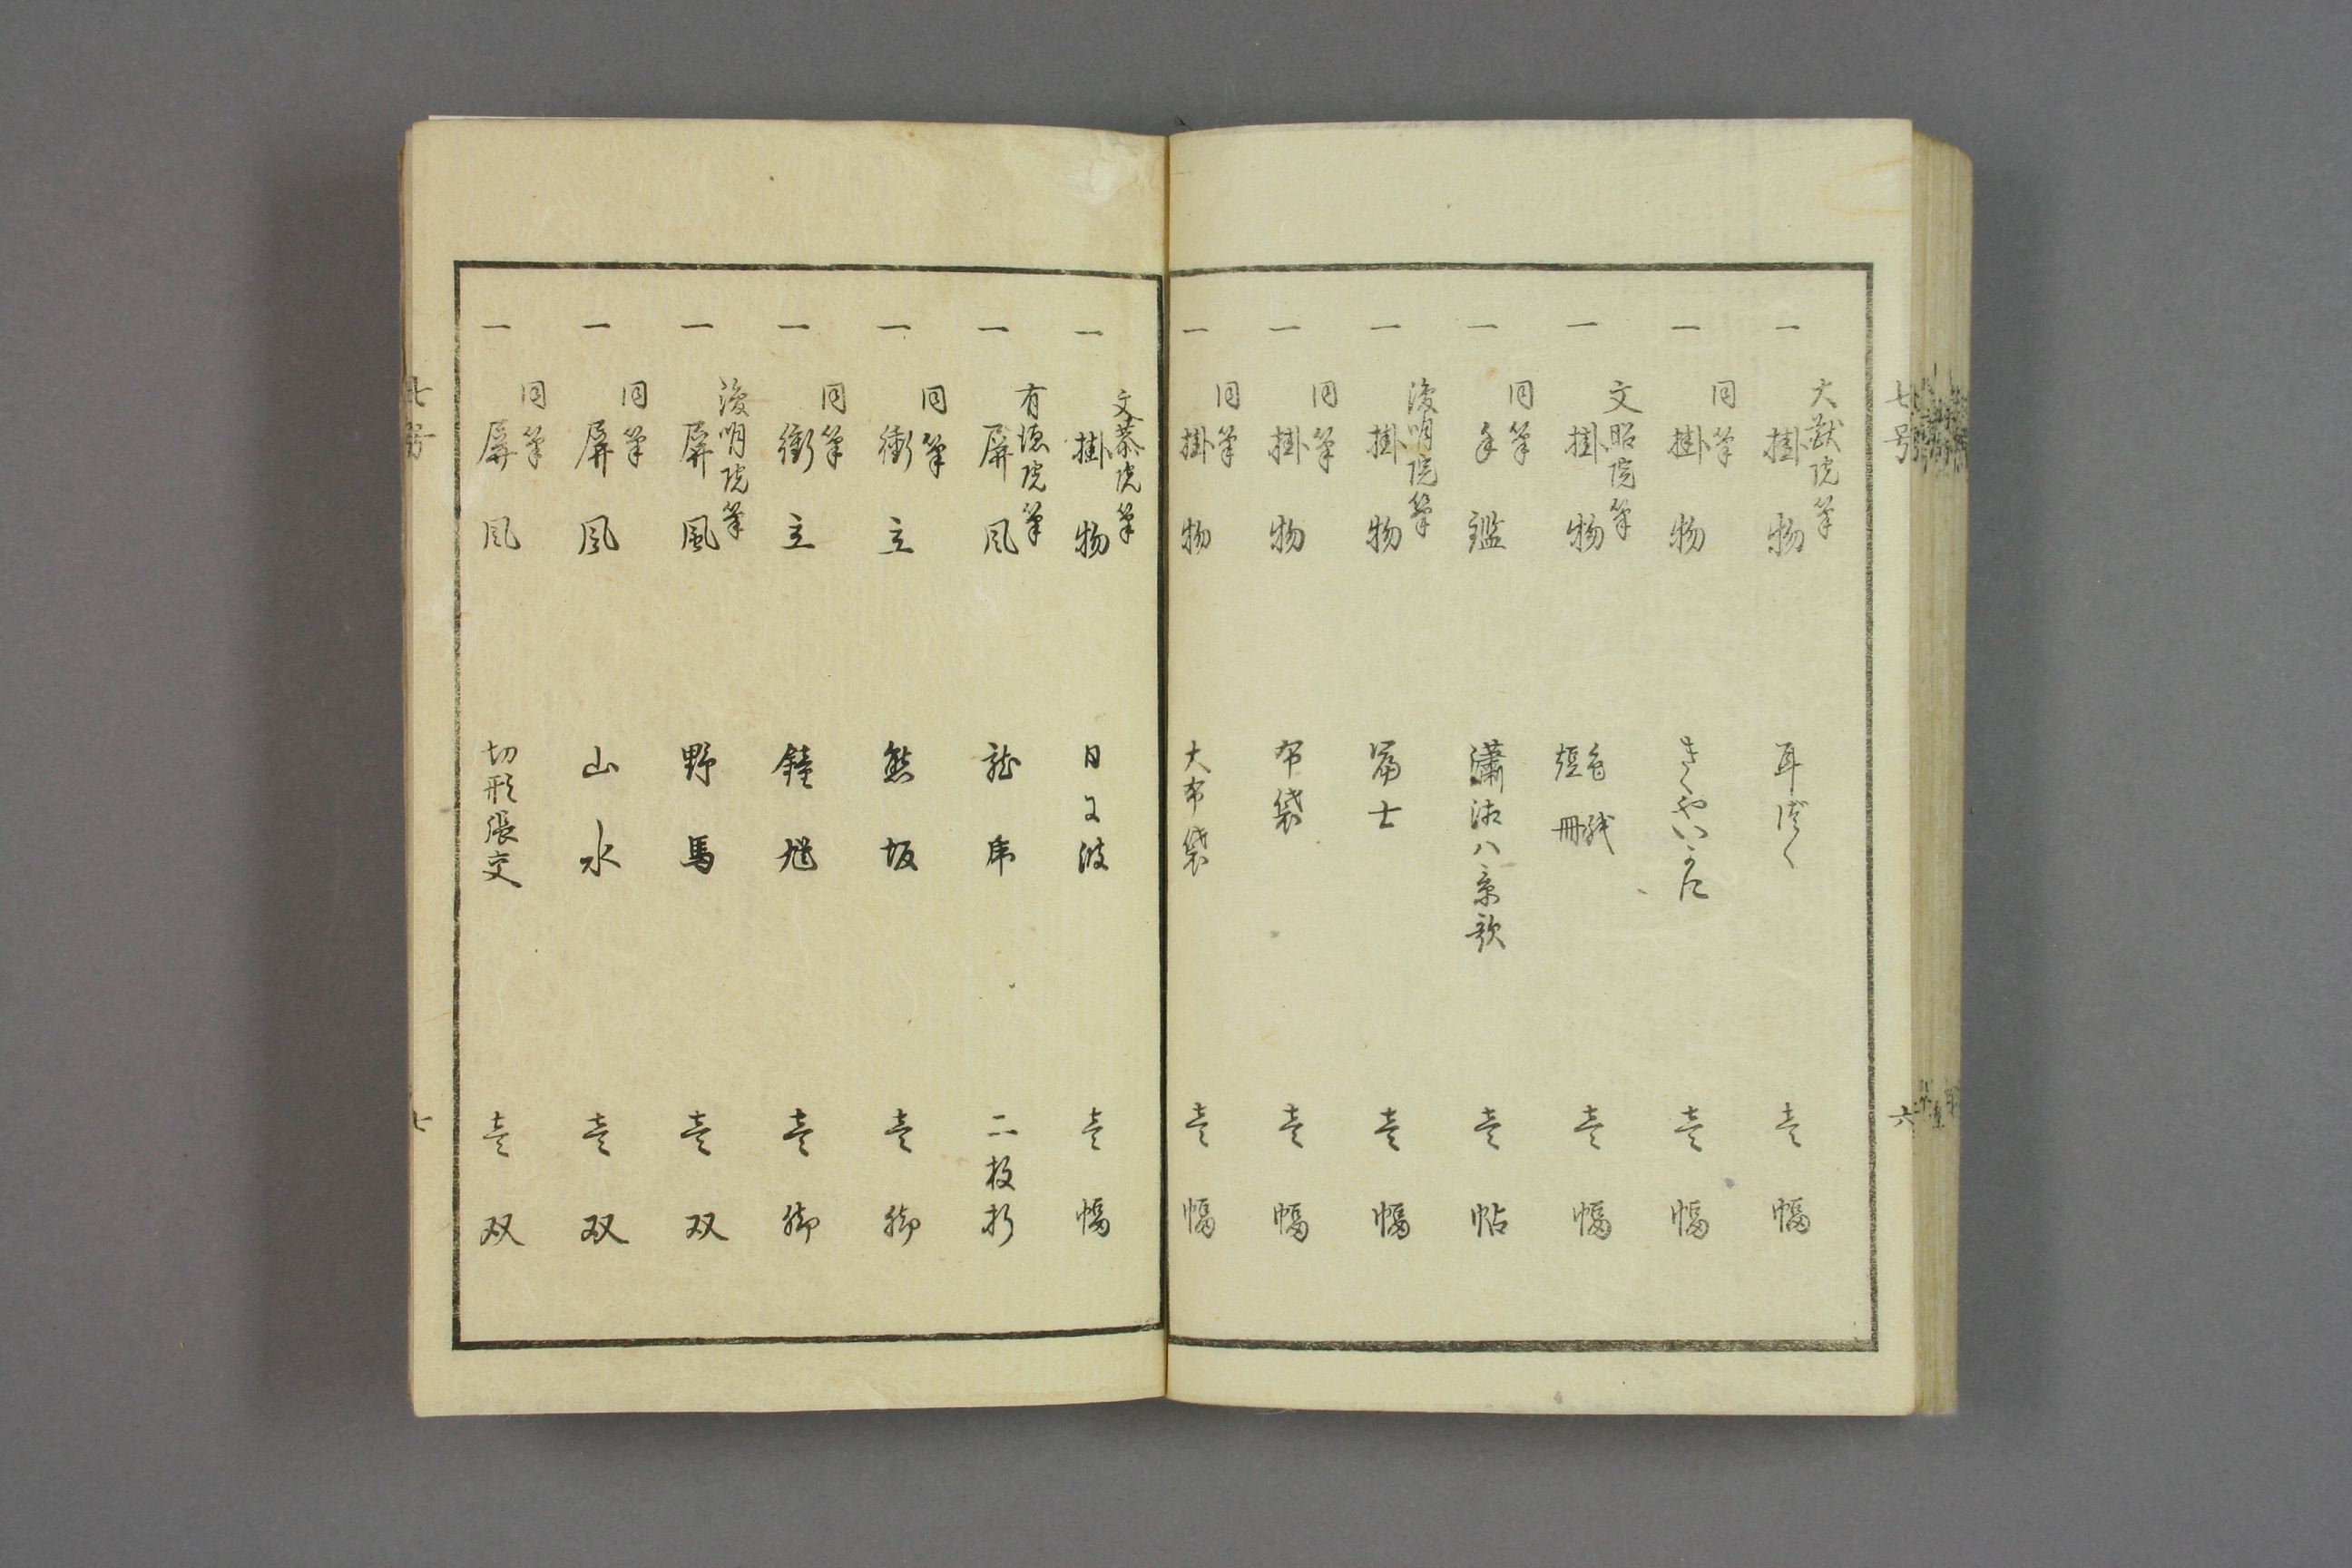 七号
六
大猷院筆
一 掛物 耳づく 壱幅
同筆
一 掛物 きくやいかに 壱幅
文昭院筆
一 掛物 色紙 短冊 壱幅
同筆
一 手鑑 瀟湘八景歌 壱帖
浚明院筆
一 掛物 冨士 壱幅
同筆
一 掛物 布袋 壱幅
同筆
一 掛物 大布袋 壱幅
文恭院筆
一 掛物 日ニ波 壱幅
有徳院筆
一 屏風 龍虎 二枚折
同筆
一 衝立 熊坂 壱脚
同筆
一 衝立 鐘馗 壱脚
浚明院筆
一 屏風 野馬 壱双
同筆
一 屏風 山水 壱双
同筆
一 屏風 切形張交 壱双
七号
七